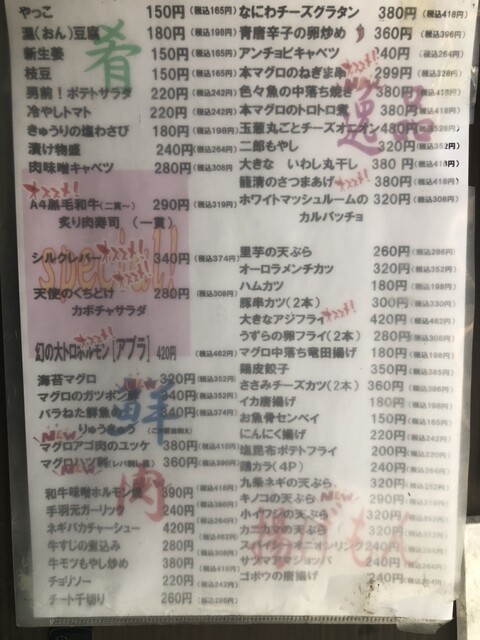 やっこ 150円(税込165円)
温(おん)豆腐 180円(税込198円)
新生姜 150円(税込165円)
枝豆 150円(税込165円)
男前!ポテトサラダ 220円(税込242円)
冷やしトマト 220円(税込242円)
きゅうりの塩わさび 180円(税込198円)
漬け物盛 240円(税込264円)
肉味噌キャベツ 280円(税込308円)
肴
オススメ!
A4黒毛和牛(二貫〜) 290円(税込319円)
炙り肉寿司 (一貫)
シルクレバー オススメ! 340円(税込374円)
special!
オススメ!
天使のくちどけ 280円(税込308円)
カボチャサラダ
オススメ!
幻の大トロホルモン[アブラ] 420円 (税込462円)
海苔マグロ 320円(税込352円)
マグロのガツポン酢 340円(税込352円)
バラねた鮮魚の 340円(税込374円)
りゅうきゅう
鮮
NEW
マグロアゴ肉のユッケ 380円(税込418円)
NEW
マグロハツ刺(レバ刺し風) 360円(税込396円)
肉
和牛味噌ホルモン 390円
手羽元ガーリック 240円
ネギバカチャーシュー 420円
牛すじの煮込み 280円
牛モツもやし炒め 380円
チョリソー 220円(税込242円)
チート千切り 260円
なにわチーズグラタン 380円(税込418円)
青唐辛子の卵炒め 360円(税込396円)
アンチョビキャベツ 240円(税込264円)
本マグロのねぎま串 299円
色々魚の中落ち焼き 380円(税込418円)
本マグロのトロトロ煮 380円(税込418円)
玉葱丸ごとチーズオニオン 480円
二郎もやし 320円(税込352円)
大きな いわし丸干し 380円(税込418円)
籠清のさつまあげ オススメ! 380円(税込418円)
ホワイトマッシュルームの 320円
カルパッチョ
逸品
里芋の天ぷら 260円(税込286円)
オーロラメンチカツ 320円(税込352円)
ハムカツ 180円(税込198円)
豚串カツ(2本) 300円(税込330円)
大きなアジフライ オススメ! 420円(税込462円)
うずらの卵フライ(2本) 280円(税込308円)
マグロ中落ち竜田揚げ 180円(税込198円)
陽皮餃子 350円(税込385円)
ささみチーズカツ(2本) 360円(税込396円)
イカ唐揚げ 180円(税込198円)
お魚骨センベイ 150円(税込165円)
にんにく揚げ 220円(税込242円)
塩昆布ポテトフライ 200円(税込220円)
鶏カラ(4P) 240円(税込264円)
九条ネギの天ぷら 320円
キノコの天ぷら 290円
NEW
ホイフジの天ぷら 320円
カニカマの天ぷら 240円
スパイシーオニオンリング 240円
サツマアマジョッパ 240円
ゴボウの唐揚げ 240円
揚げもん